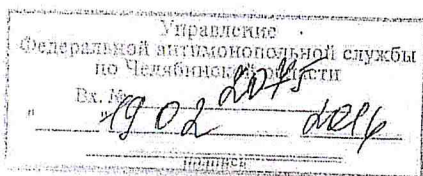 Управление
Федеральной антимонопольной службы
по Челябинской области
Вх. № 2075
" 19 02 2016
подпись